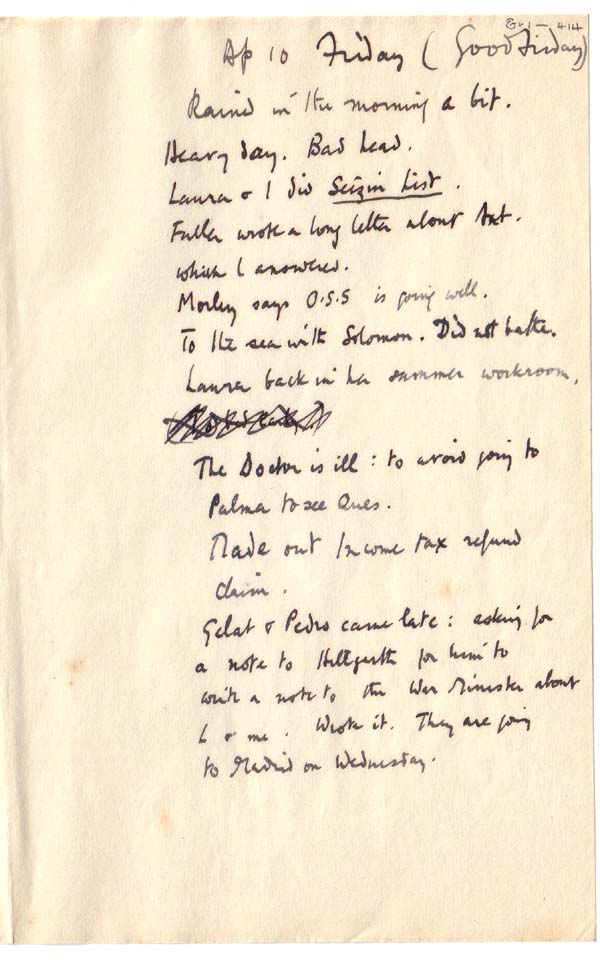 414
Ap 10 Friday (Good Friday)
Rained in the morning a bit.
Heavy day. Bad head.
Laura & I did Seizin List.
Fuller wrote a long letter about Ant.
which I answered.
Morley says O.S.S is going well.
To the sea with Solomon. Did not bathe.
Laura back in her summer workroom.
The Doctor is ill: to avoid going to
Palma to see Ques.
Made out Income tax refund
claim.
Gelat & Pedro came late: asking for
a note to Hillgarth for him to
write a note to the War Minister about
L & me. Wrote it. They are going
to Madrid on Wednesday.